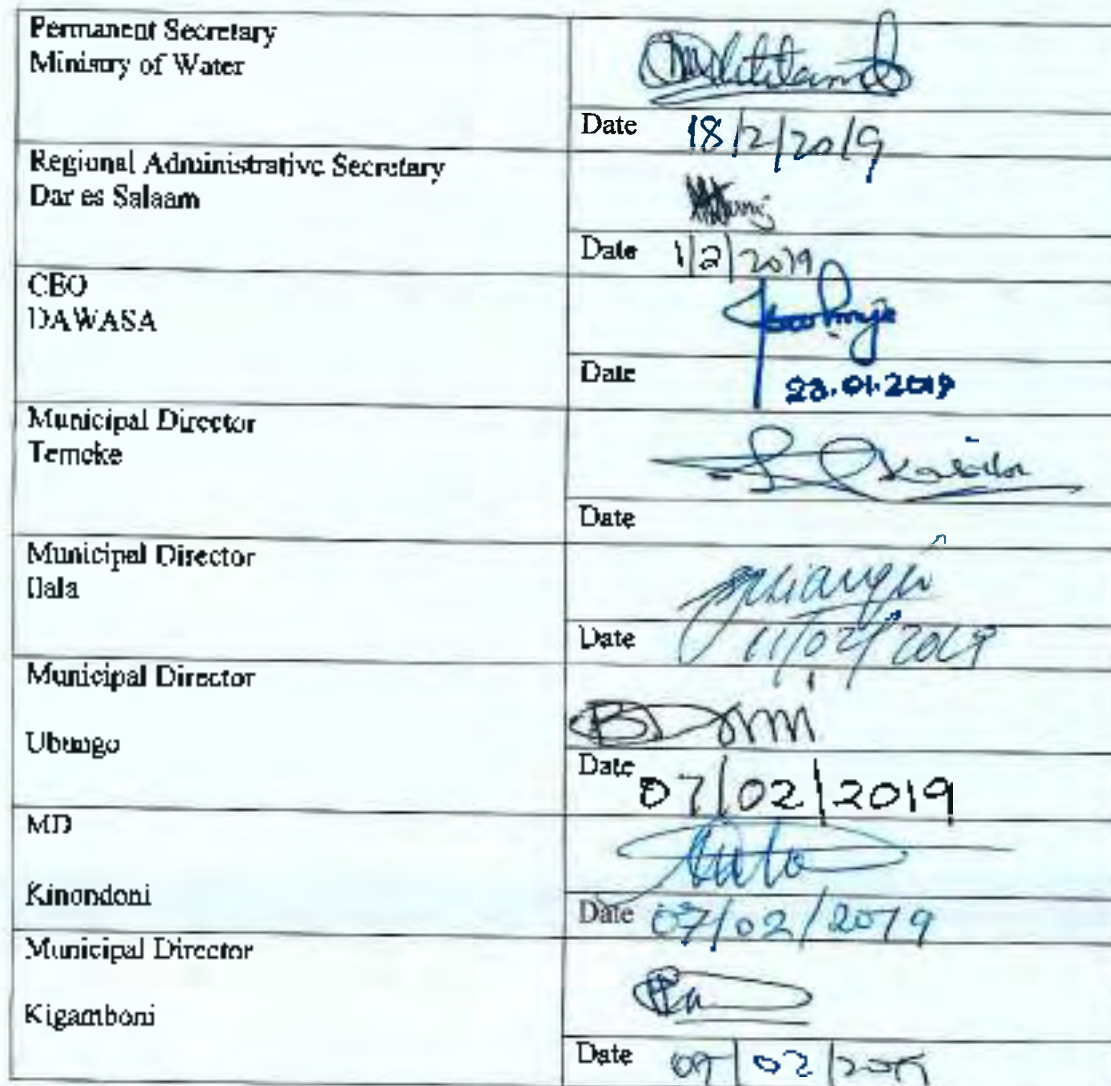 Permanent Secretary
Ministry of Water
Date 18/2/2019
Regional Administrative Secretary
Dar es Salaam
Date 1/2/2019
CEO
DAWASA
Date 23.01.2019
Municipal Director
Temeke
Date
Municipal Director
Ilala
Date 11/02/2019
Municipal Director
Ubungo
Date 07/02/2019
MD
Kinondoni
Date 07/02/2019
Municipal Director
Kigamboni
Date